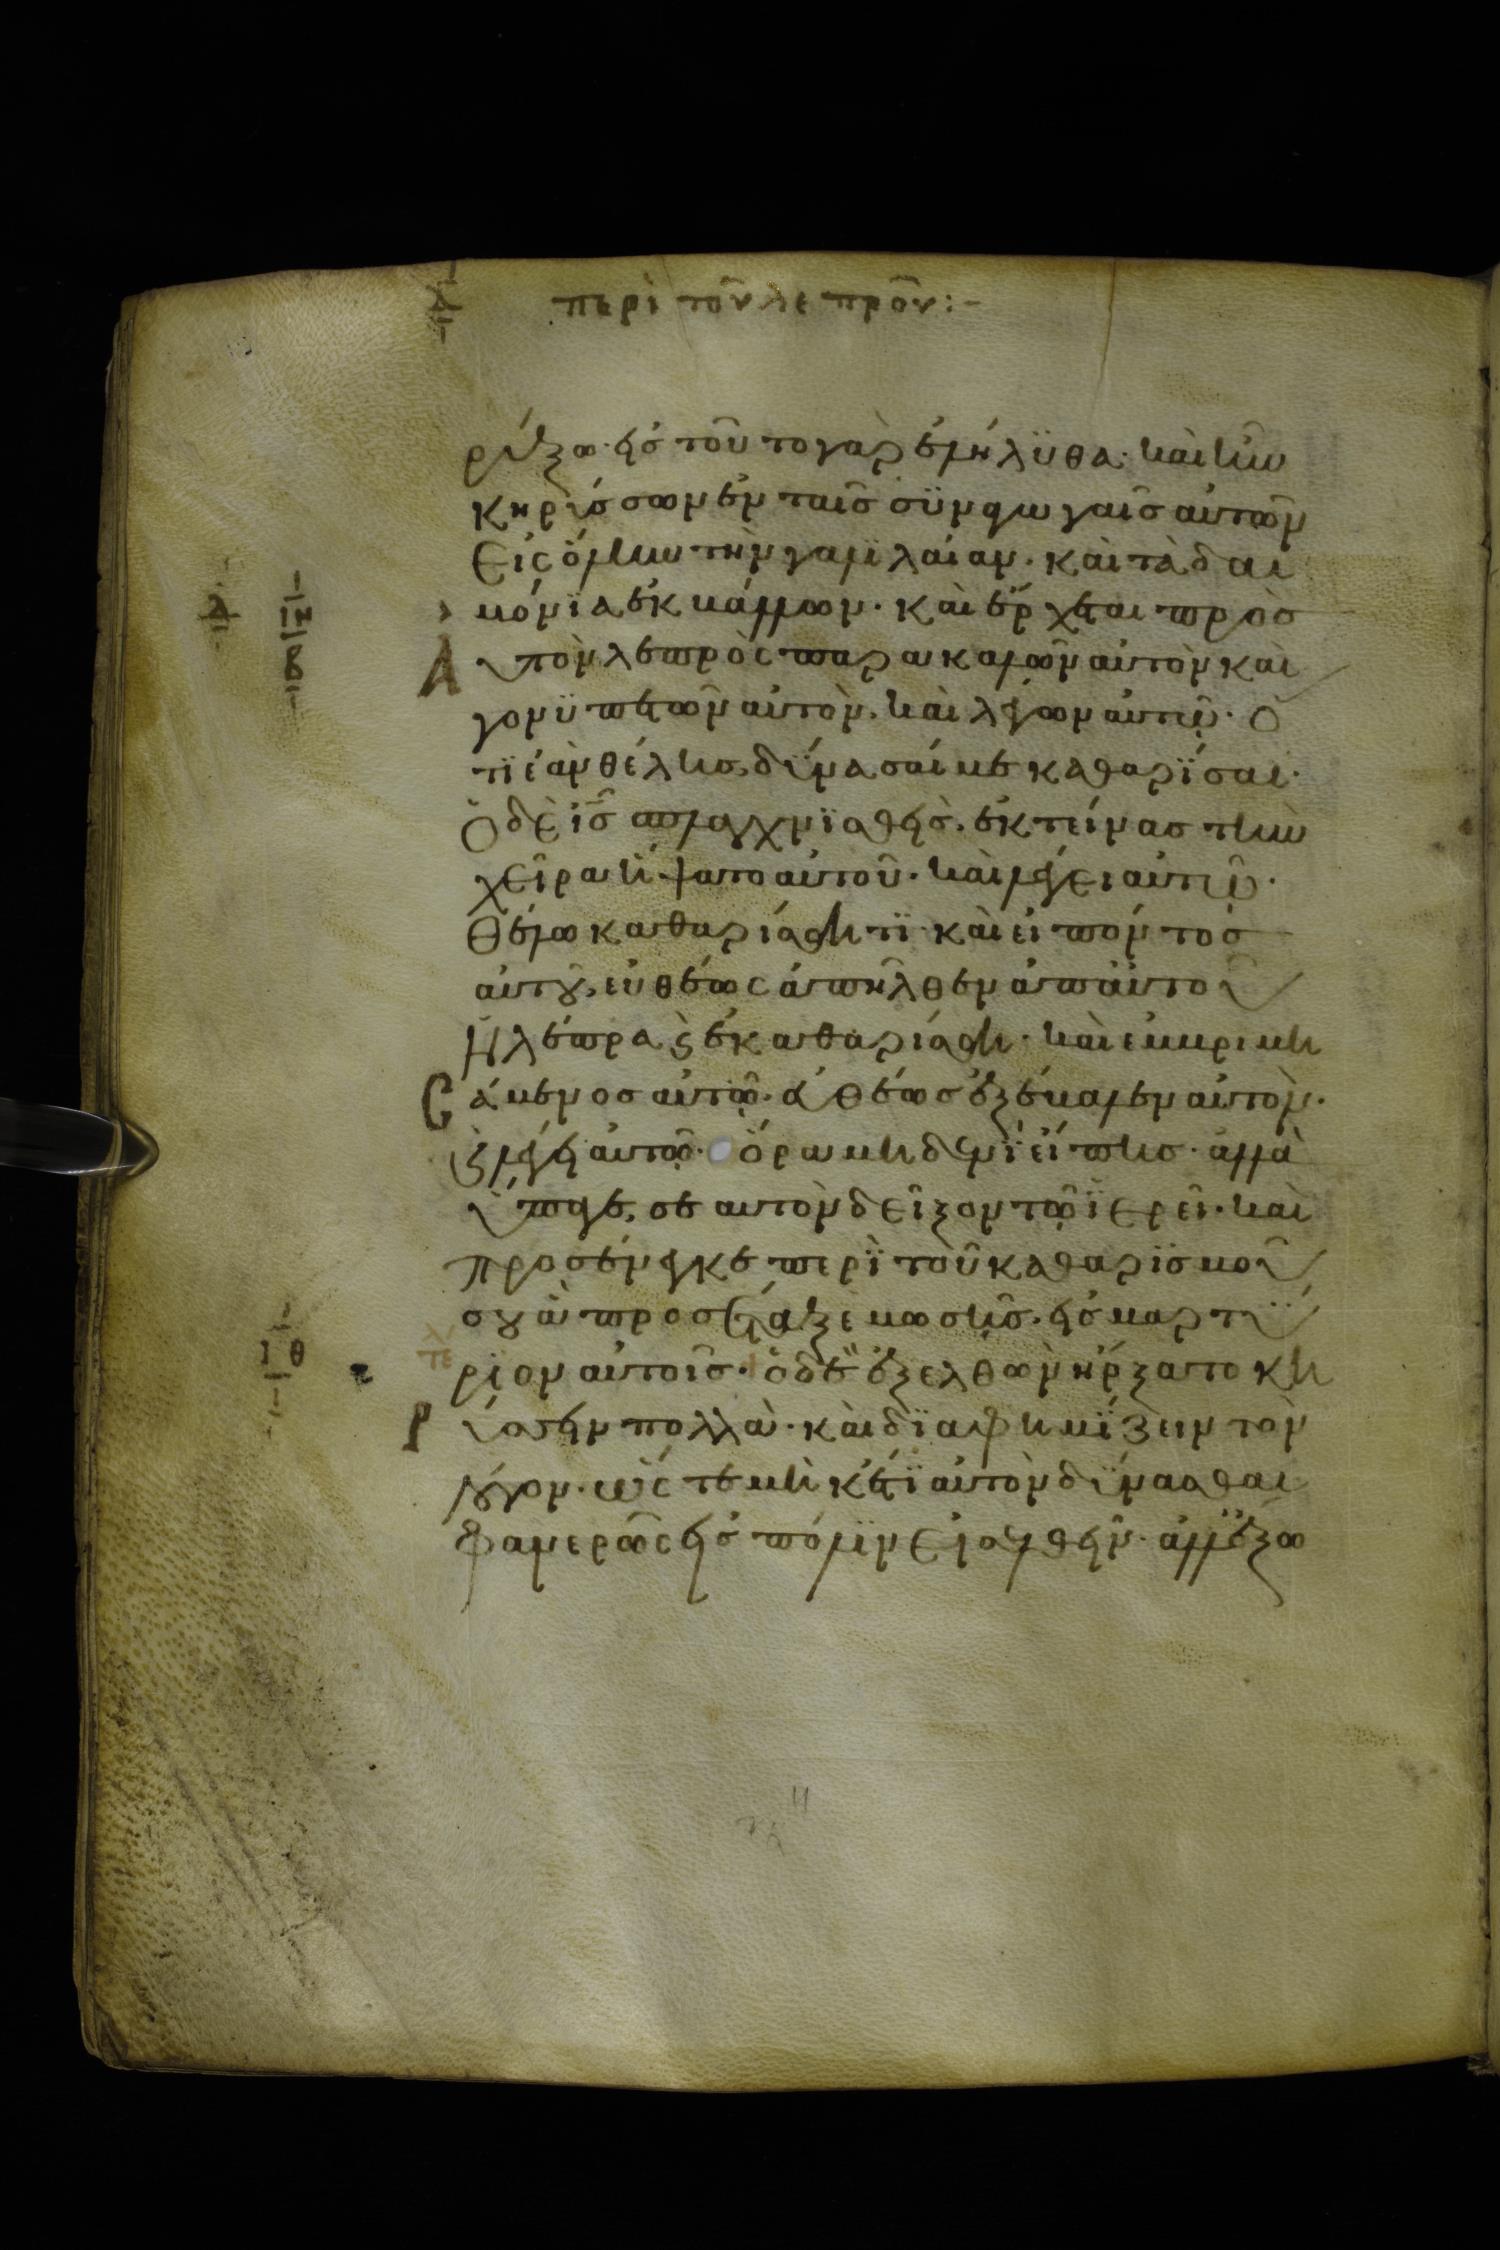 περὶ τοῦ λεπροῦ:-
ρύξω· εἰσ τοῦτο γὰρ ἐλήλϋθα· καὶ ἦν
κηρύσσων ἐν ταῖσ σϋναγωγαῖσ αὐτῶν
Εἰς ὅλην τὴν γαλιλαίαν· καὶ τὰ δαι
μόνϊα ἐκβάλλων· καὶ ἔρχεται πρὸσ
Αυτὸν λεπρὸς παρακαλῶν αὐτὸν καὶ
γονϋπετῶν αὐτὸν, καὶ λέγων αὐτῶ· Ὅ
τϊ ἐὰν θέλησ, δϋνασαί με καθαρϊσαι·
Ὁ δὲ ισ σπλαγχνϊσθεὶσ, ἐκτείνασ τὴν
χεῖρα ἥψατο αὐτοῦ· καὶ λέγει αὐτῶ·
Θέλω καθαρίσθητϊ· καὶ εἰπόντοσ
αὐτου, εὐθέως ἀπῆλθεν ἀπ αὐτοῦ
Ἡ λέπρα ϗ ἐκαθαρίσθη· καὶ ἐμβριμη
Cάμενοσ αὐτῶ· εὐθέωσ ἐξέβαλεν αὐτὸν·
ϗ λέγει αὐτῶ· Ὅρα μηδενϊ εἴπησ· ἀλλὰ
ὕπαγε, σεαυτὸν δεῖξον τῶ ϊερεῖ· καὶ
προσένεγκε περϊ τοῦ καθαρϊσμοῦ
σου ἃ προσέταξε μωσῆσ· εἰσ μαρτϋ
ρϊον αὐτοῖσ· ὁ δὲ ἐξελθὼν ἤρξατο κη
Ρύσσειν πολλὰ· καὶ δϊαφημϊζειν τὸν
λόγον· ὥς τε μὴ κέτϊ αὐτὸν δϋνασθαι
φανερῶς εἰσ πόλϊν Εἰσελθεῖν· ἀλλ ἔξω
ΙΗ
Β
ΙΘ
τε